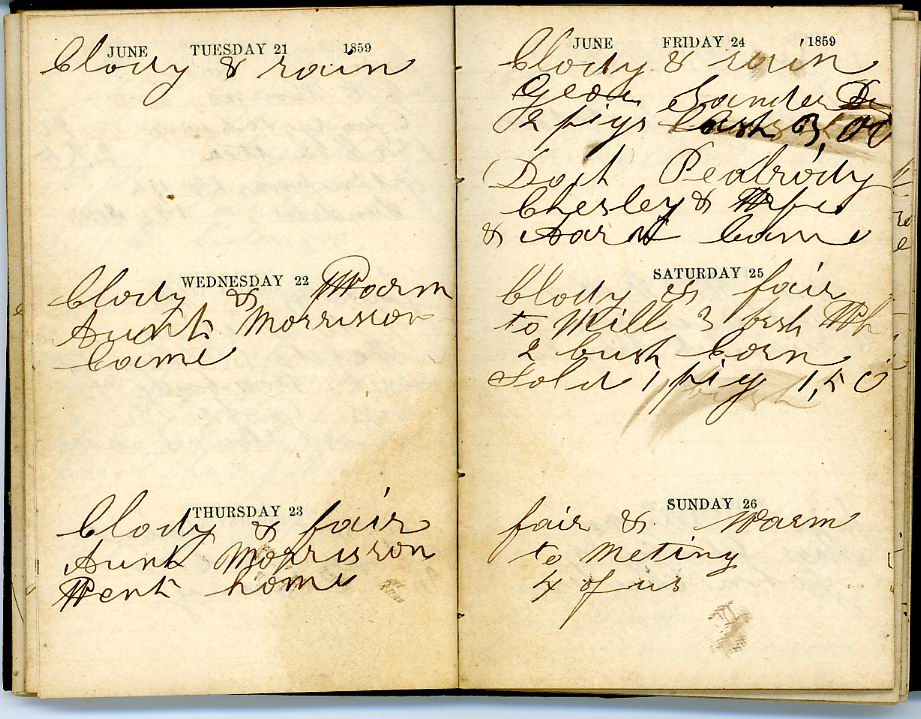 JUNE TUESDAY 21 1859
Clody & rain
WEDNESDAY 22
Clody & Warm
Aunt Morrison
Came
THURSDAY 23
Clody & fair
Aunt Morrison
Went home
JUNE FRIDAY 24 1859
Clody & rain
Geoa Sander Dr
2 pigs Cash 3,00
Doct Peabody
Chesley & Wife
& Aarn Came
SATURDAY 25
Clody & fair
to Mill 3 bush Wh
2 bush Corn
Sold 1 pig 1,50
SUNDAY 26
fair & Warm
to Meting
4 of us